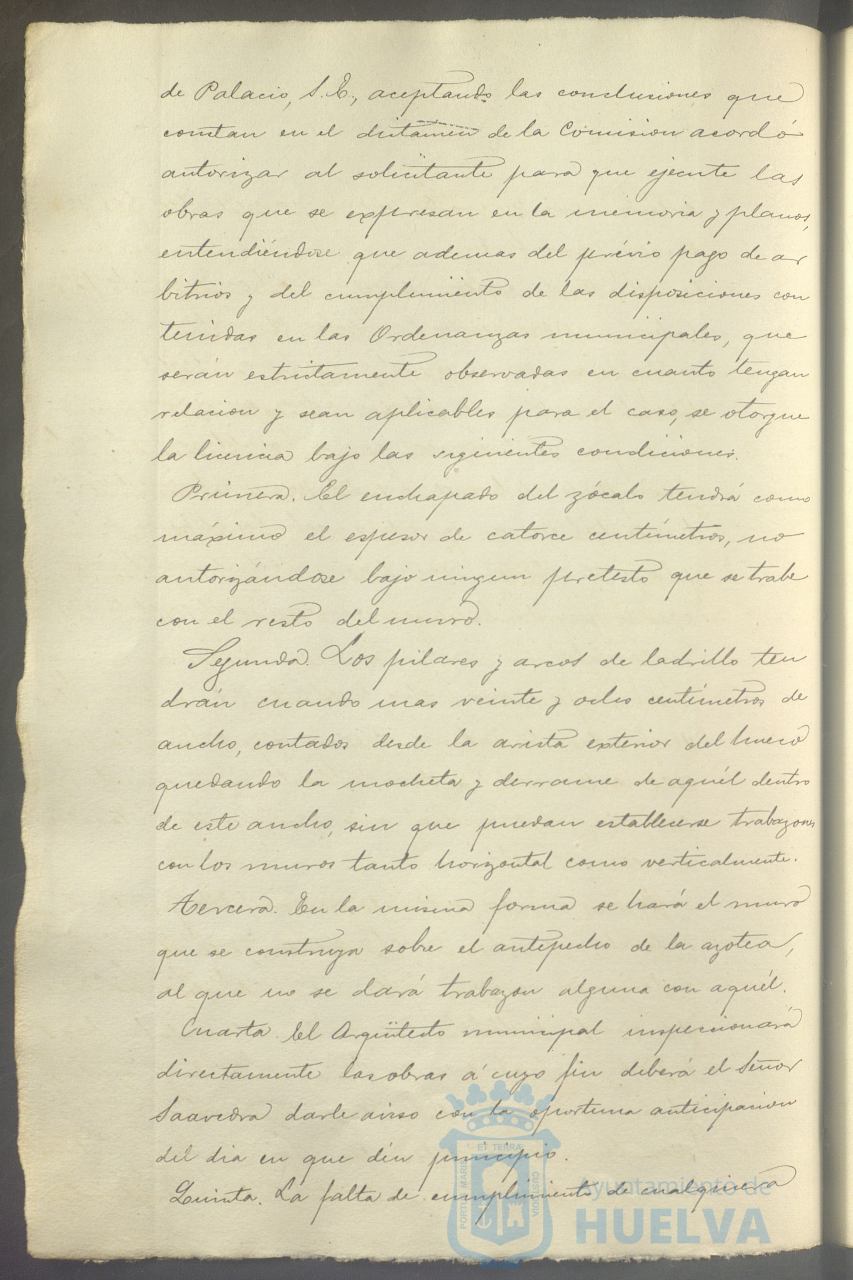 de Palacio, S. E., aceptando las conclusiones que
constan en el dictamen de la Comision acordó
autorizar al solicitante para que ejecute las
obras que se expresan en la memoria y planos,
entendiéndose que ademas del prévio pago de ar
bitrios y del cumplimiento de las disposiciones con
tenidas en las Ordenanzas municipales, que
serán estrictamente observadas en cuanto tengan
relacion y sean aplicables para el caso, se otorgue
la licencia bajo las siguientes condiciones.
Primera. El enchapado del zócalo tendrá como
máximo el espesor de catorce centímetros, no
autorizándose bajo ningun pretesto que se trabe
con el resto del muro.
Segunda. Los pilares y arcos de ladrillo ten
drán cuando mas veinte y ocho centímetros de
ancho, contados desde la arista exterior del hueco
quedando la mocheta y derrame de aquél dentro
de este ancho, sin que puedan establecerse trabazones
con los muros tanto horizontal como verticalmente.
Tercera. En la misma forma se hará el muro
que se construya sobre el antepecho de la azotea,
al que no se dará trabazon alguna con aquél.
Cuarta. El Arquitecto municipal inspeccionará
directamente las obras á cuyo fin deberá el Señor
Saavedra darle aviso con la oportuna anticipacion
del dia en que dén principio.
Quinta. La falta de cumplimiento de cualquiera
ET TERRA
PORTUS MARIS
CUSTODIA
Ayuntamiento de
HUELVA